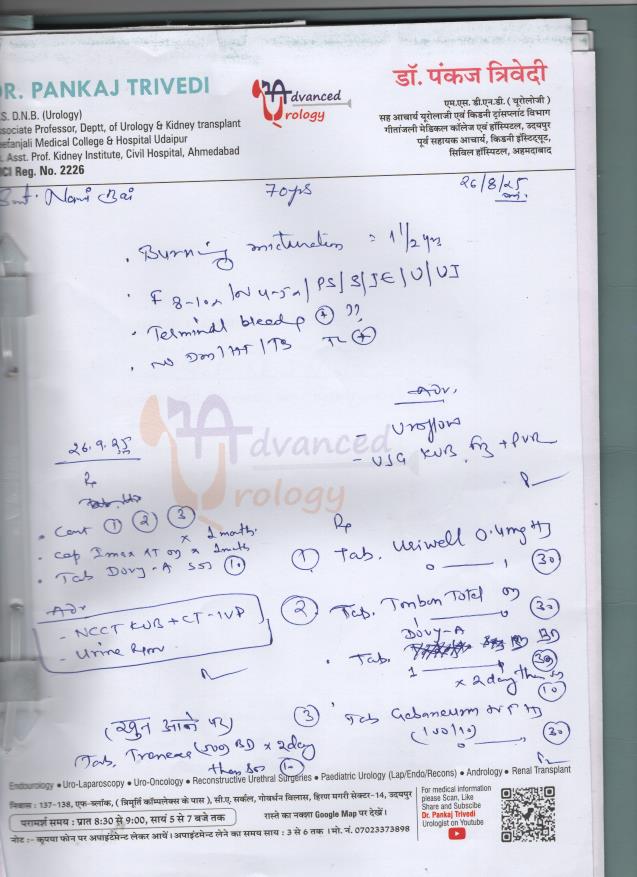 DR. PANKAJ TRIVEDI
.S. D.N.B. (Urology)
ssociate Professor, Deptt, of Urology & Kidney transplant
eetanjali Medical College & Hospital Udaipur
. Asst. Prof. Kidney Institute, Civil Hospital, Ahmedabad
CI Reg. No. 2226
Advanced
Urology
डॉ. पंकज त्रिवेदी
एम.एस. डी.एन.बी. ( यूरोलोजी )
सह आचार्य यूरोलाजी एवं किडनी ट्रांसप्लांट विभाग
गीतांजली मेडिकल कॉलेज एवं हॉस्पिटल, उदयपुर
पूर्व सहायक आचार्य, किडनी इंस्टिट्यूट,
सिविल हॉस्पिटल, अहमदाबाद
Smt. Nani Bai 70yrs 26/8/25
. Burning micturition = 1 1/2 yrs
. F 8-10x / N 4-5x / PS / S / IE / U / UI
. Terminal bleed + ??
. No DM / HT / TB TL +
Adv.
- Uroflow
- USG KUB + PVR
26.9.25
Rp
. Cont 1 2 3 x 2 months
. Cap x 1 month
. Tab Dovy-A SOS 10
Adv
- NCCT KUB + CT-IVP
- Urine R/M
Rp
1 Tab. Uriwell 0.4mg 30
0 —— 1
2 Tab. Tonbon Total 30
1 —— 0
. Tab. Dovy-A BD
1 —— x 2 day then SOS
10
3 Tab Gabaneuron
(100/10) 30
0 —— 1
(खून आने पर)
Tab. Tranexa (500) BD x 2 day
then SOS 10
Advanced
Urology
Endourology • Uro-Laparoscopy • Uro-Oncology • Reconstructive Urethral Surgeries • Paediatric Urology (Lap/Endo/Recons) • Andrology • Renal Transplant
निवास : 137-138, एफ-ब्लॉक, ( त्रिमूर्ति कॉम्पलेक्स के पास ), सी.ए. सर्कल, गोवर्धन विलास, हिरण मगरी सेक्टर-14, उदयपुर
परामर्श समय : प्रात 8:30 से 9:00, सायं 5 से 7 बजे तक
रास्ते का नक्शा Google Map पर देखें।
नोट :- कृपया फोन पर अपाइंटमेन्ट लेकर आयें। अपाइंटमेन्ट लेने का समय सायं : 3 से 6 तक । मो. नं. 07023373898
For medical information
please Scan, Like
Share and Subscibe
Dr. Pankaj Trivedi
Urologist on Youtube